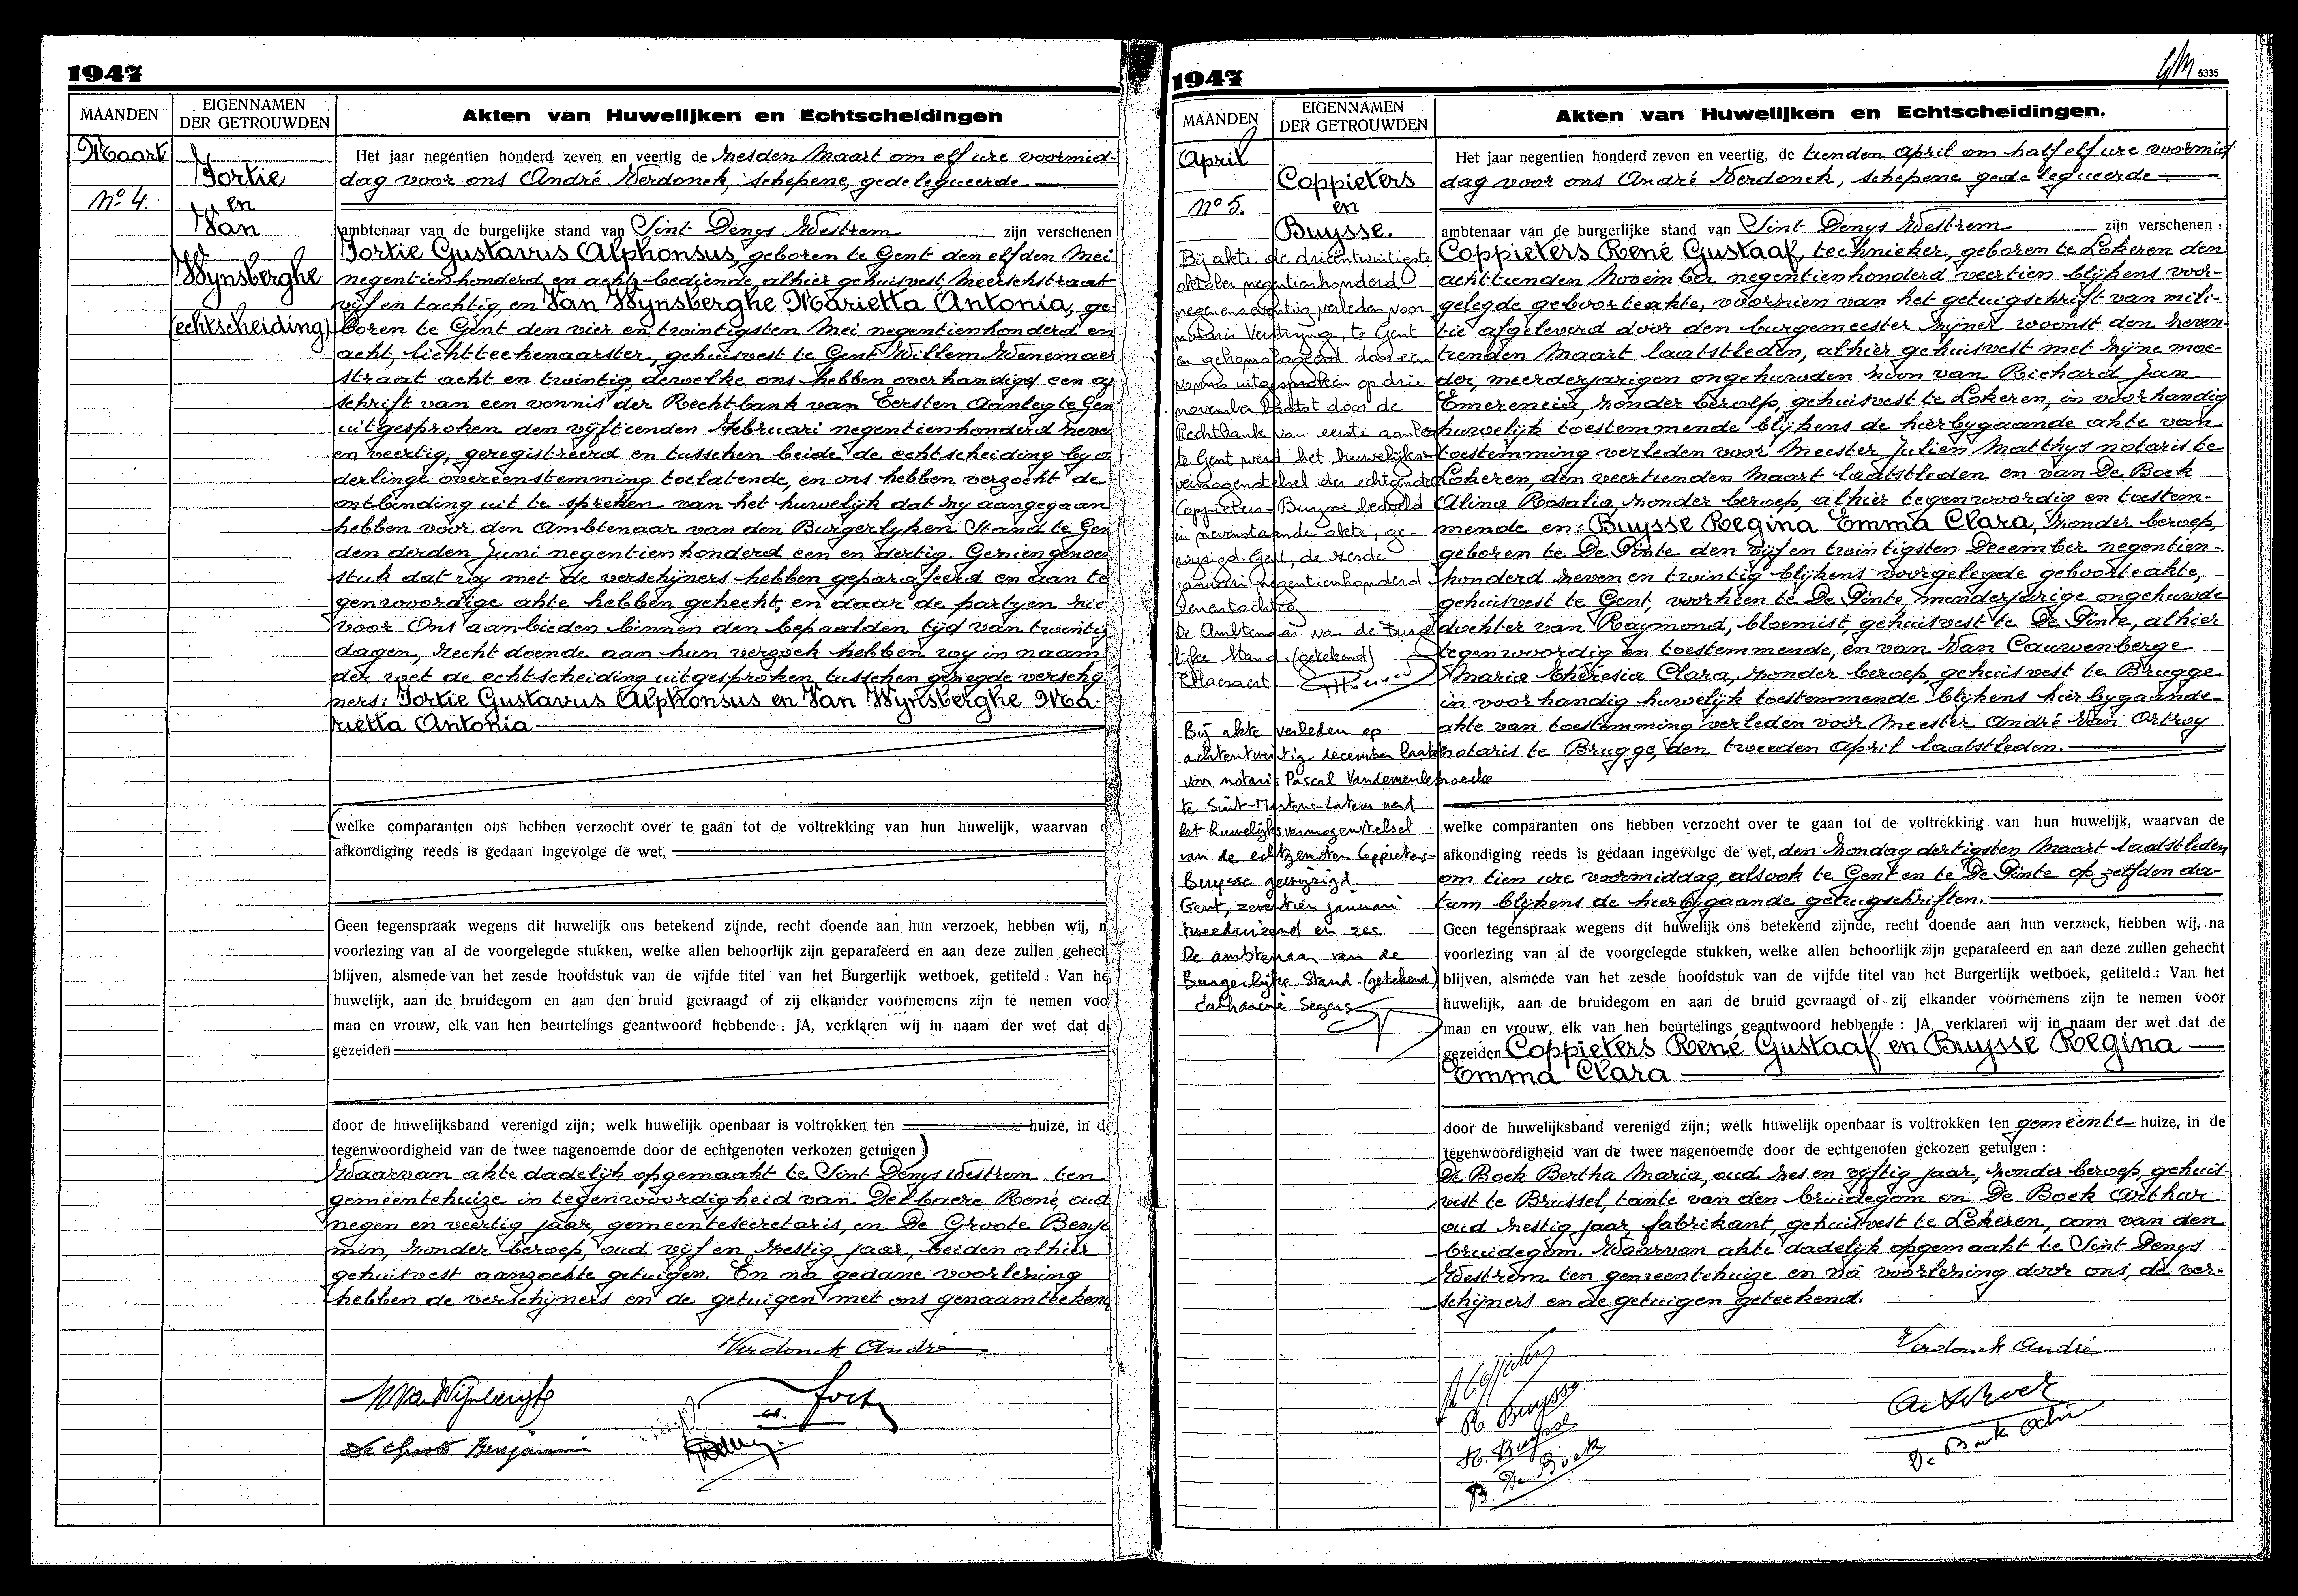 1947
MAANDEN
EIGENNAMEN
DER GETROUWDEN
Akten van Huwelijken en Echtscheidingen
Maart
Nº 4.
Fortie
en
Van
Wynsberghe
(echtscheiding)
Het jaar negentien honderd zeven en veertig de zesden Maart om elf ure voormid-
dag voor ons André Verdonck, schepene, gedelegueerde
ambtenaar van de burgelijke stand van Sint Denys Westrem zijn verschenen
Fortie Gustavus Alphonsus, geboren te Gent den elfden Mei
negentienhonderd en acht, bediende, alhier gehuisvest Meerschstraat
vijf en tachtig, en Van Wynsberghe Marietta Antonia, ge-
boren te Gent den vier en twintigsten Mei negentienhonderd en
acht, lichtteekenaarster, gehuisvest te Gent Willem Wenemaer
straat acht en twintig, dewelke ons hebben overhandigd een af
schrift van een vonnis der Rechtbank van Eersten Aanleg te Gen
uitgesproken den vijftienden Februari negentienhonderd zeve
en veertig, geregistreerd en tusschen beide de echtscheiding by o
derlinge overeenstemming toelatende, en ons hebben verzocht de
ontbinding uit te spreken van het huwelijk dat zy aangegaan
hebben voor den Ambtenaar van den Burgerlyken Stand te Gen
den derden Juni negentienhonderd een en dertig. Gezien genoem
stuk dat wy met de verschijners hebben geparafeerd en aan te
genwoordige akte hebben gehecht, en daar de partyen zie
voor Ons aanbieden binnen den bepaalden tijd van twintig
dagen, recht doende aan hun verzoek hebben wy in naam
der wet de echtscheiding uitgesproken tusschen gezegde verschij
ners: Fortie Gustavus Alphonsus en Van Wynsberghe Ma-
rietta Antonia
(welke comparanten ons hebben verzocht over te gaan tot de voltrekking van hun huwelijk, waarvan d
afkondiging reeds is gedaan ingevolge de wet,
Geen tegenspraak wegens dit huwelijk ons betekend zijnde, recht doende aan hun verzoek, hebben wij, n
voorlezing van al de voorgelegde stukken, welke allen behoorlijk zijn geparafeerd en aan deze zullen gehech
blijven, alsmede van het zesde hoofdstuk van de vijfde titel van het Burgerlijk wetboek, getiteld : Van he
huwelijk, aan de bruidegom en aan den bruid gevraagd of zij elkander voornemens zijn te nemen voo
man en vrouw, elk van hen beurtelings geantwoord hebbende : JA, verklaren wij in naam der wet dat d
gezeiden
door de huwelijksband verenigd zijn; welk huwelijk openbaar is voltrokken ten huize, in d
tegenwoordigheid van de twee nagenoemde door de echtgenoten verkozen getuigen :)
Waarvan akte dadelijk opgemaakt te Sint Denys Westrem ten
gemeentehuize in tegenwoordigheid van Delbaere René, oud
negen en veertig jaar, gemeentesecretaris, en De Groote Benja
min, zonder beroep, oud vijf en zestig jaar, beiden alhier
gehuisvest aanzochte getuigen. En na gedane voorlezing
hebben de verschijners en de getuigen met ons genaamteekend
Verdonck André
M Van Wijnberghe
De Groote Benjamin
1947
5335
MAANDEN
EIGENNAMEN
DER GETROUWDEN
Akten van Huwelijken en Echtscheidingen.
April
Nº 5.
Coppieters
en
Buysse.
Bij akte de drieëntwintigste
oktober negentienhonderd
negenenzeventig verleden voor
notaris Verstringe, te Gent
en gehomologeerd door een
vonnis uitgesproken op drie
november laatst door de
Rechtbank van eerste aanleg
te Gent werd het huwelijks-
vermogenstelsel der echtgenoten
Coppieters-Buysse bedoeld
in nevenstaande akte, ge-
wijzigd. Gent, de zesde
januari negentienhonderd
eenentachtig
De Ambtenaar van de Burger
lijke Stand. (getekend)
Bij akte verleden op
achtentwintig december laatst
voor notaris Pascal Vandemeulebroecke
te Sint-Martens-Latem werd
het huwelijksvermogenstelsel
van de echtgenoten Coppieters-
Buysse gewijzigd.
Gent, zeventien januari
tweeduizend en zes
De ambtenaar van de
Burgerlijke Stand. (getekend)
Catharine Segers
Het jaar negentien honderd zeven en veertig, de tienden April om half elf ure voormid
dag voor ons André Verdonck, schepene gedelegueerde
ambtenaar van de burgerlijke stand van Sint Denys Westrem zijn verschenen :
Coppieters René Gustaaf, technieker, geboren te Lokeren den
achttienden November negentienhonderd veertien blijkens voor-
gelegde geboorteakte, voorzien van het getuigschrift van mili-
tie afgeleverd door den burgemeester zijner woonst den zeven-
tienden Maart laatstleden, alhier gehuisvest met zijne moe-
der, meerderjarigen ongehuwden zoon van Richard Jan
Emerencia, zonder beroep, gehuisvest te Lokeren, in voorhandig
huwelijk toestemmende blijkens de hierbygaande akte van
toestemming verleden voor Meester Julien Matthys notaris te
Lokeren, den veertienden Maart laatstleden en van De Bock
Alina Rosalia, zonder beroep, alhier tegenwoordig en toestem-
mende en: Buysse Regina Emma Clara, zonder beroep,
geboren te De Pinte den vijf en twintigsten December negentien-
honderd zeven en twintig blijkens voorgelegde geboorteakte,
gehuisvest te Gent, voorheen te De Pinte, minderjarige ongehuwde
dochter van Raymond, bloemist, gehuisvest te De Pinte, alhier
tegenwoordig en toestemmende, en van Van Cauwenberge
Maria Theresia Clara, zonder beroep, gehuisvest te Brugge
in voorhandig huwelijk toestemmende blijkens hierbygaande
akte van toestemming verleden voor Meester André Van Ortroy
notaris te Brugge, den tweeden April laatstleden.
welke comparanten ons hebben verzocht over te gaan tot de voltrekking van hun huwelijk, waarvan de
afkondiging reeds is gedaan ingevolge de wet, den Zondag dertigsten Maart laatstleden
om tien ure voormiddag, alsook te Gent en te De Pinte op zelfden da-
tum blijkens de hierbygaande getuigschriften.
Geen tegenspraak wegens dit huwelijk ons betekend zijnde, recht doende aan hun verzoek, hebben wij, na
voorlezing van al de voorgelegde stukken, welke allen behoorlijk zijn geparafeerd en aan deze zullen gehecht
blijven, alsmede van het zesde hoofdstuk van de vijfde titel van het Burgerlijk wetboek, getiteld : Van het
huwelijk, aan de bruidegom en aan de bruid gevraagd of zij elkander voornemens zijn te nemen voor
man en vrouw, elk van hen beurtelings geantwoord hebbende : JA, verklaren wij in naam der wet dat de
gezeiden Coppieters René Gustaaf en Buysse Regina
Emma Clara
door de huwelijksband verenigd zijn; welk huwelijk openbaar is voltrokken ten gemeente huize, in de
tegenwoordigheid van de twee nagenoemde door de echtgenoten gekozen getuigen :
De Bock Bertha Maria, oud zes en vijftig jaar, zonder beroep, gehuis-
vest te Brussel, tante van den bruidegom en De Bock Arthur
oud zestig jaar, fabrikant, gehuisvest te Lokeren, oom van den
bruidegom. Waarvan akte dadelijk opgemaakt te Sint Denys
Westrem ten gemeentehuize en na voorlezing door ons, de ver-
schijners en de getuigen geteekend.
Verdonck André
R. Buysse
R. Buysse
B. De Bock